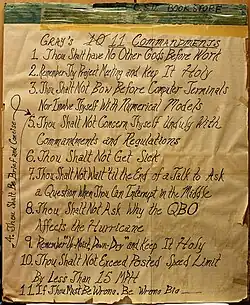 BOOK STORE
GRAY'S 10 11 COMMANDMENTS
1. Thou Shalt have No Other Gods Before Work
2. Remember Thy Project Meeting and Keep It Holy
3. Thou Shalt Not Bow Before Computer Terminals
Nor Involve Thyself With Numerical Models
4. Thou Shalt Be Brief and Concise
5. Thou Shalt Not Concern Thyself Unduly With
Commandments and Regulations
6. Thou Shalt Not Get Sick
7. Thou Shalt Not Wait 'til the End of a Talk to Ask
a Question When Thou Can Interrupt in the Middle
8. Thou Shalt Not Ask Why the QBO
Affects the Hurricane
9. Remember "Up-Moist, Down-Dry" and Keep It Holy
10. Thou Shalt Not Exceed Posted Speed Limit
By Less Than 15 MPH
11. If Thou Must Be Wrong, Be Wrong Big